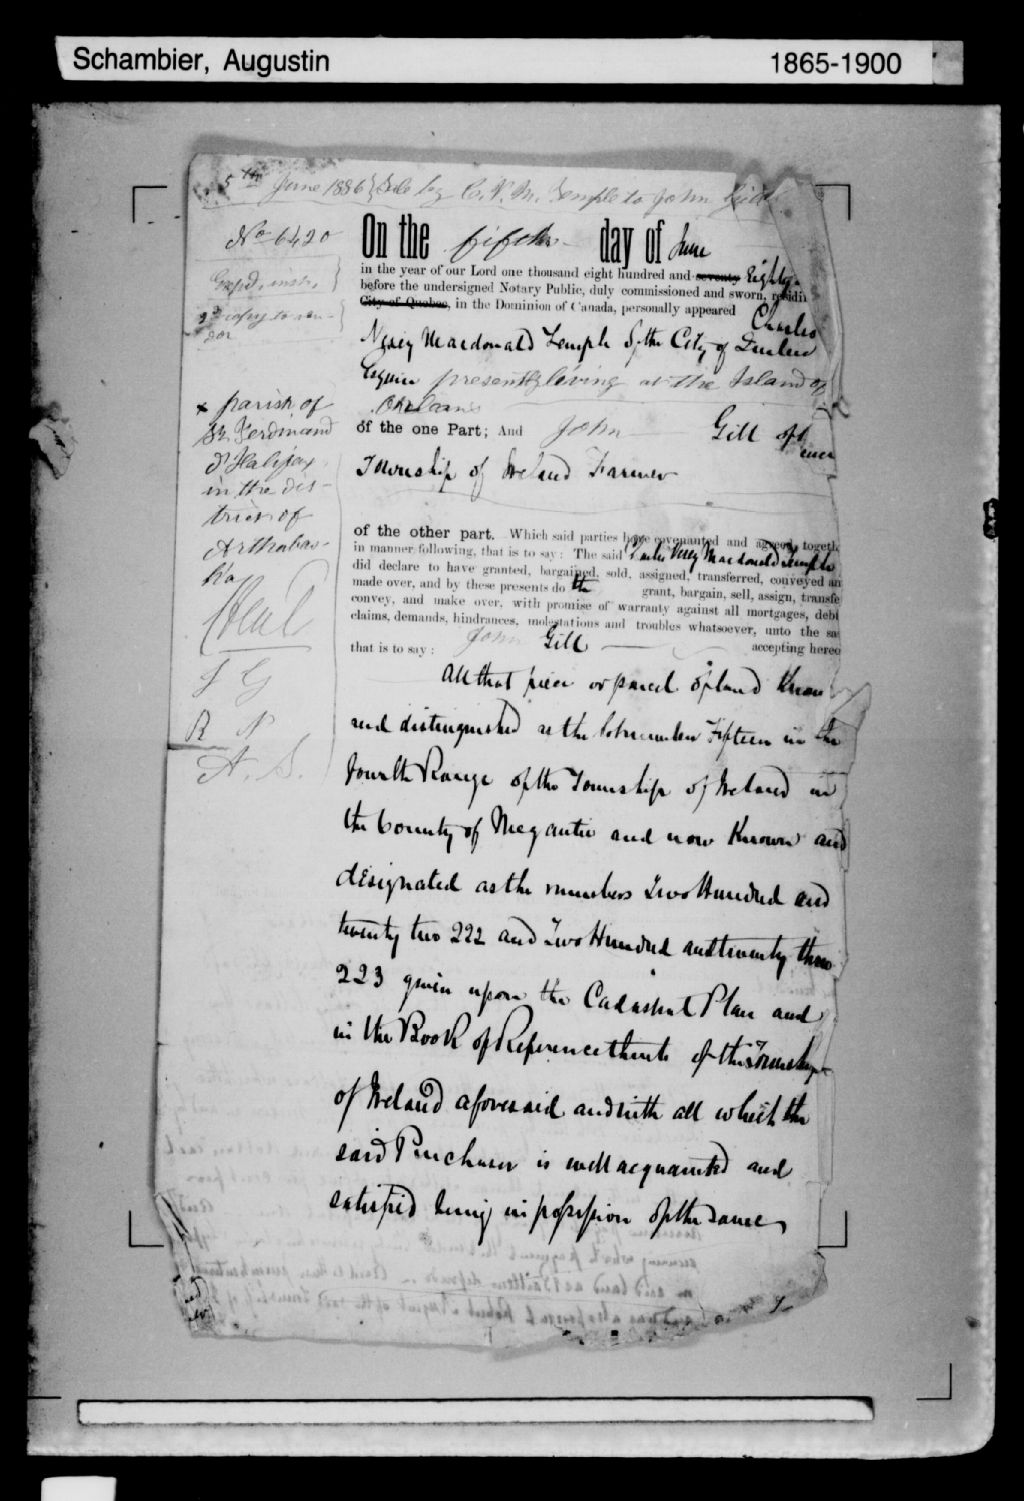 Schambier, Augustin
1865-1900
5th June 1886 } Sale by C. V. M. Temple to John Gill
No 6420
Exp'd, instr, }
2d copy to ven-
dor
On the fifth day of June
in the year of our Lord one thousand eight hundred and seventy Eighty
before the undersigned Notary Public, duly commissioned and sworn, residin
City of Quebec, in the Dominion of Canada, personally appeared Charles
Macdonald Temple of the City of Quebec
Esquire presently living at the Island of
Orleans
of the one Part; And John Gill of
Township of Ireland Farmer
x parish of
St. Ferdinand
d'Halifax
in the dis-
trict of
Arthabas-
ka
J G
R N
A. S.
of the other part. Which said parties have covenanted and agreed, togeth
in manner following, that is to say: The said Charles Macdonald Temple
did declare to have granted, bargained, sold, assigned, transferred, conveyed an
made over, and by these presents do th grant, bargain, sell, assign, transfe
convey, and make over, with promise of warranty against all mortgages, debt
claims, demands, hindrances, molestations and troubles whatsoever, unto the sa
that is to say: John Gill accepting hereo
All that piece or parcel of land Know
and distinguished as the lot number Fifteen in the
fourth Range of the Township of Ireland in
the County of Megantic and now Known and
designated as the numbers Two Hundred and
twenty two 222 and Two Hundred and twenty three
223 given upon the Cadastral Plan and
in the Book of Reference thereto of the Township
of Ireland aforesaid and with all which the
said Purchaser is well acquainted and
satisfied being in possession of the same